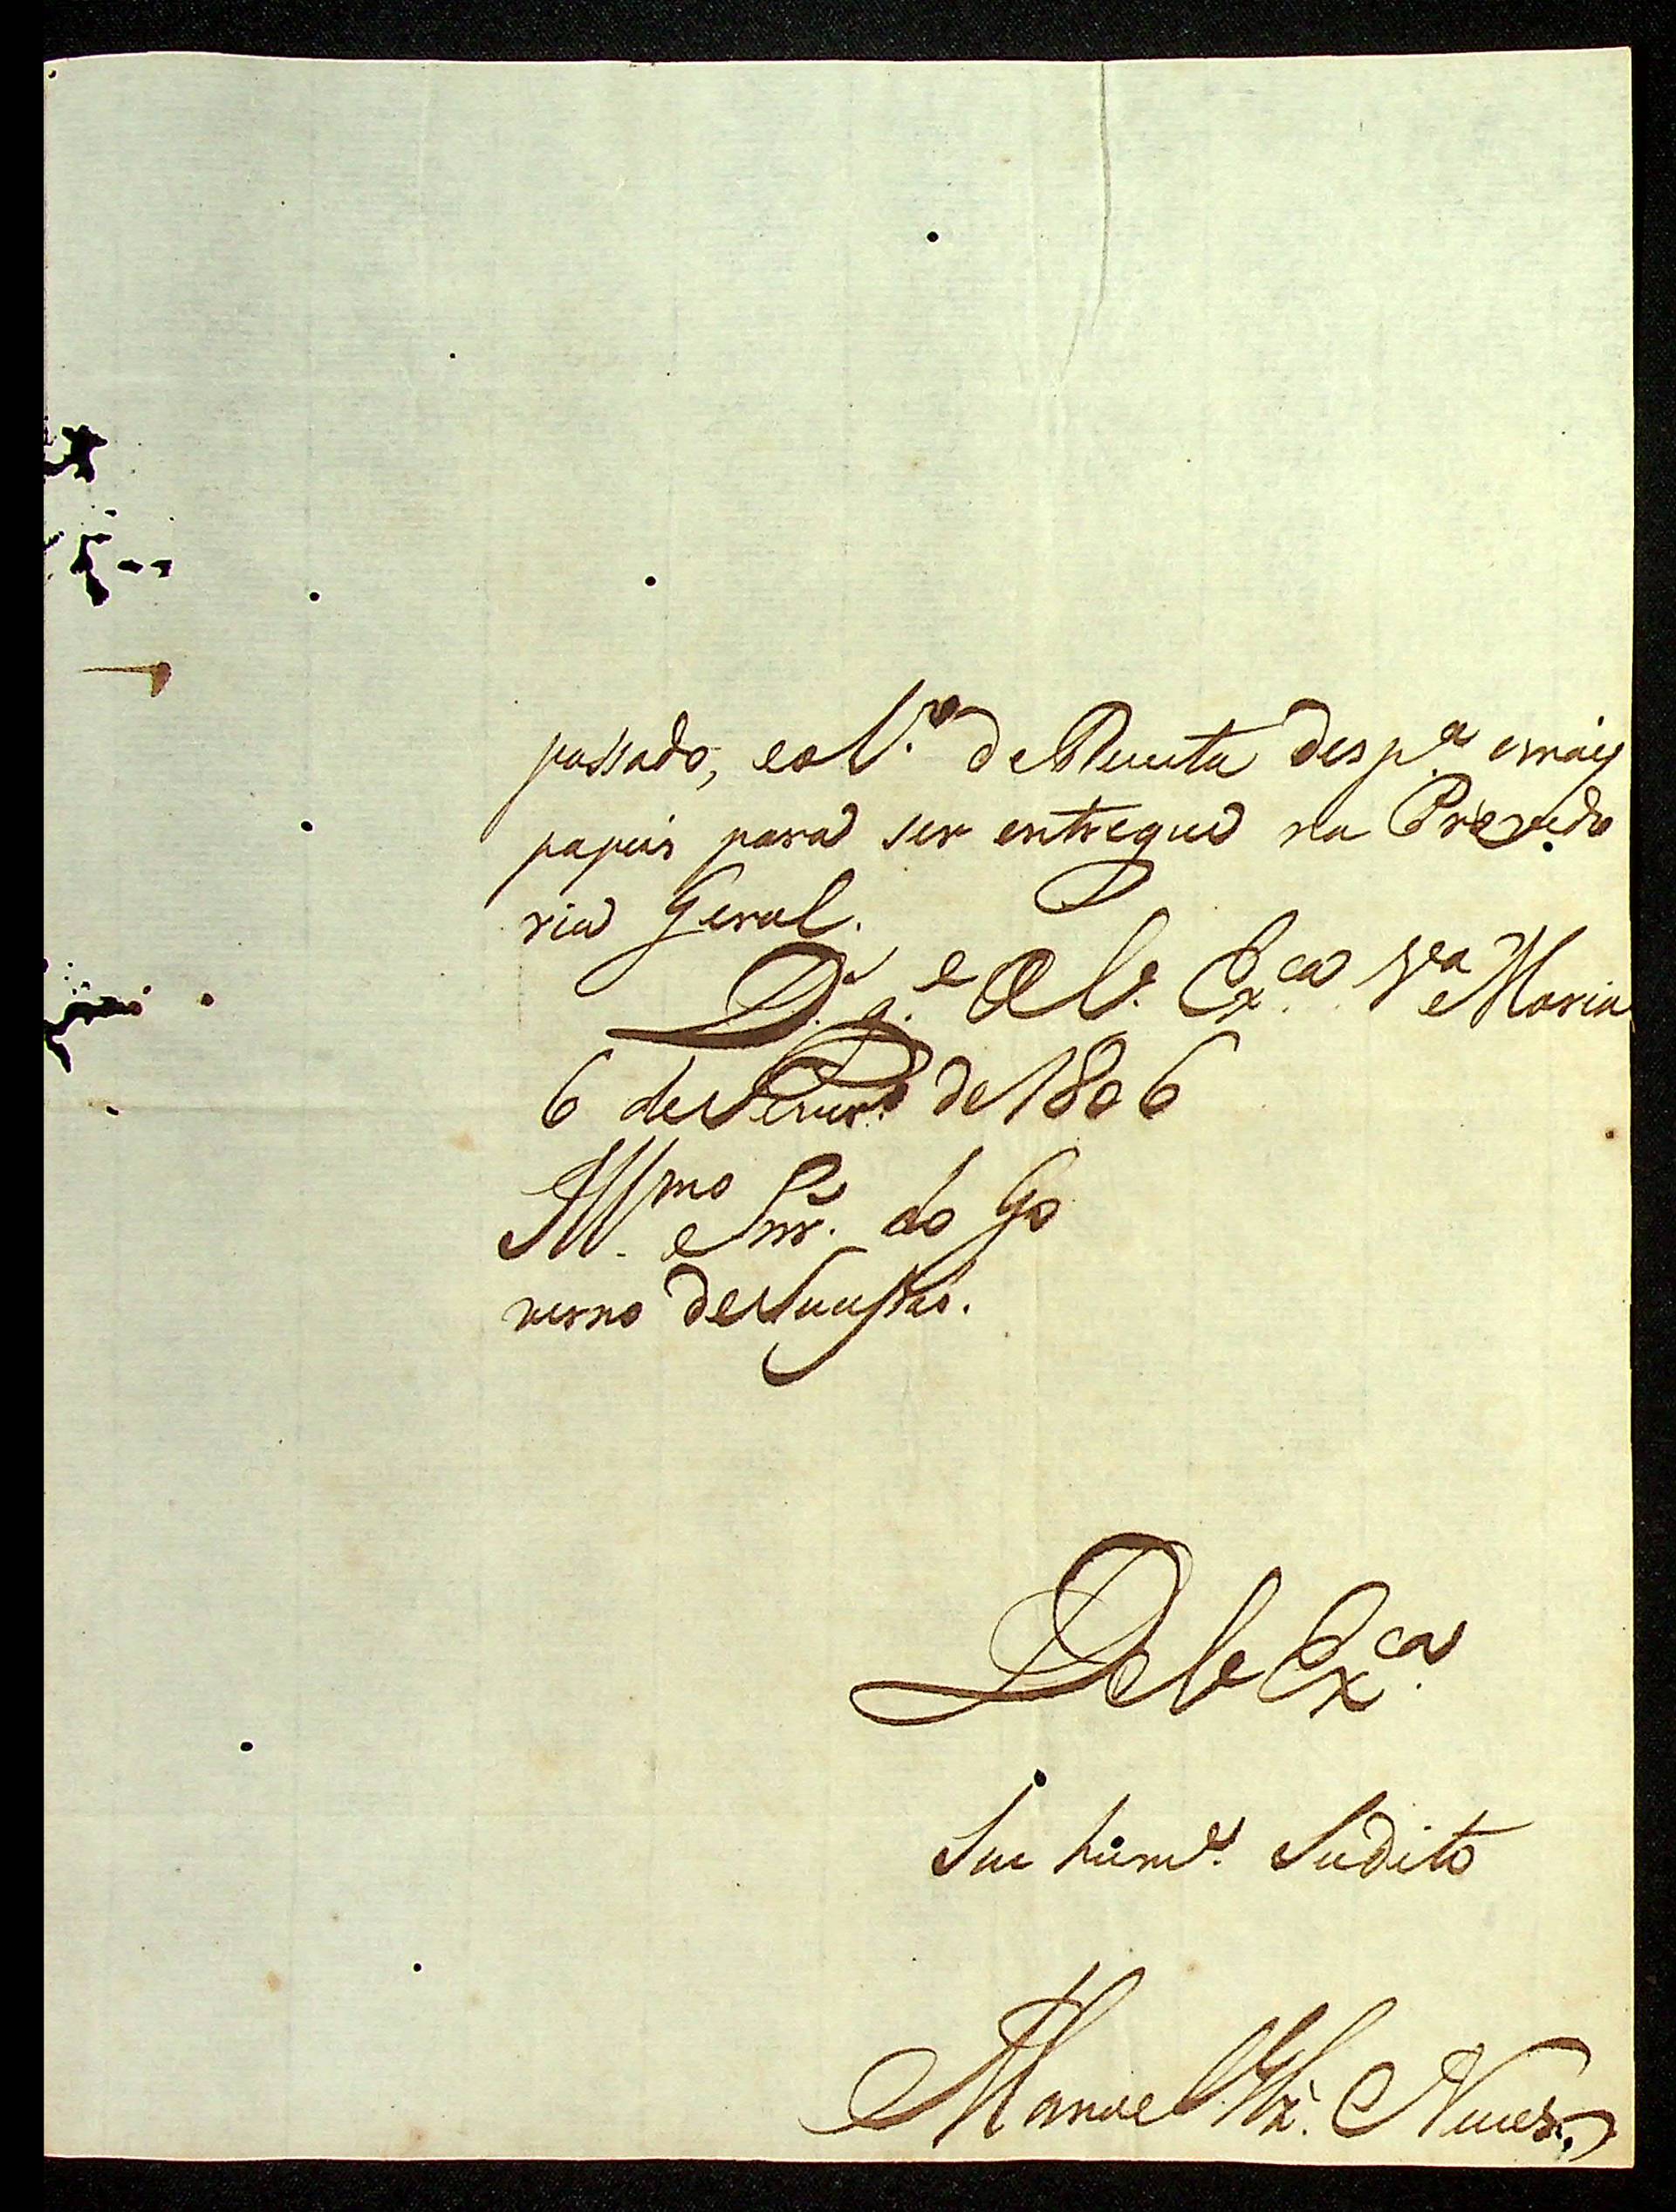 passado, eo L.º de Receita desp.ª emais
papeis para ser entregue na Provedo
ria Geral.
D.s g.e a V. Ex.ca V.a Maria
6 de Fever.º de 1806
Ill.mo Snr. do Go
verno de Sucessão.
De V. Ex.ca
Seu hum.e Sudito
Manoel Nunes